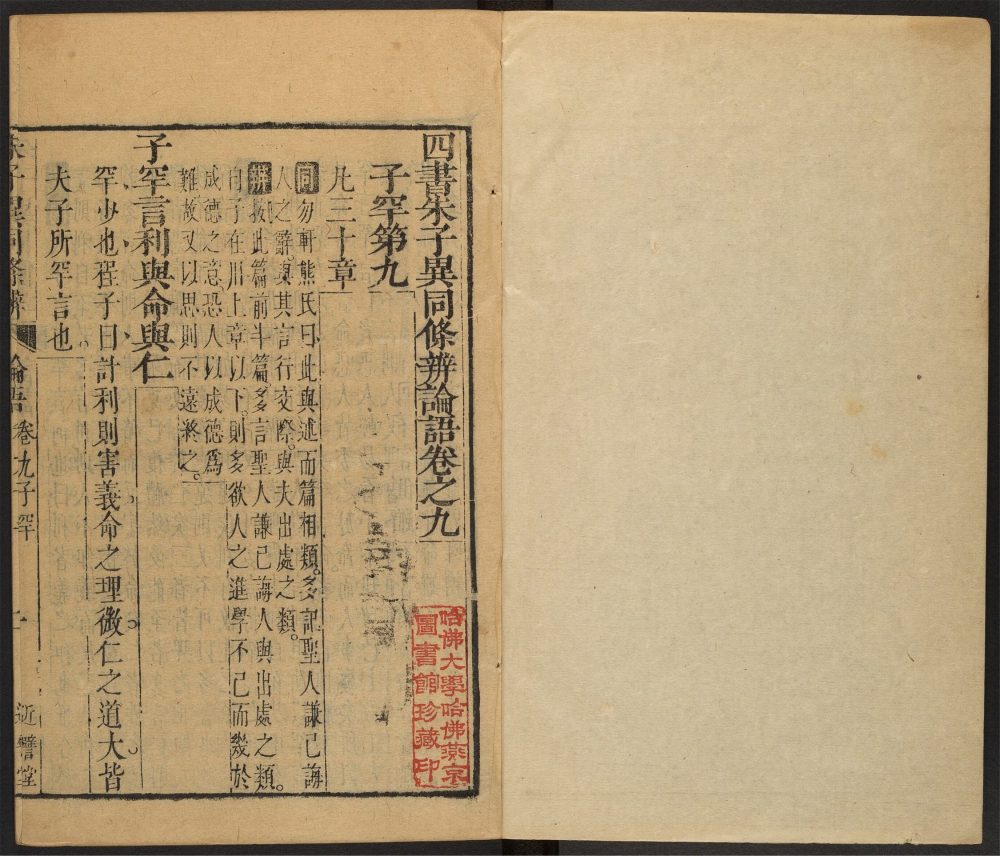 四書朱子異同條辨論語卷之九
子罕第九
凡三十章
同勿軒熊氏曰此與述而篇相類多記聖人謙己誨
人之辭與其言行交際與夫出處之類
辨按此篇前半篇多言聖人謙己誨人與出處之類
自子在川上章以下則多欲人之進學不已而幾於
成德之意恐人以成德爲
難故又以思則不遠終之
子罕言利與命與仁
罕少也程子曰計利則害義命之理微仁之道大皆
夫子所罕言也
朱子異同條辨 論語卷九子罕 一 近譬堂
哈佛大學哈佛燕京
圖書館珍藏印